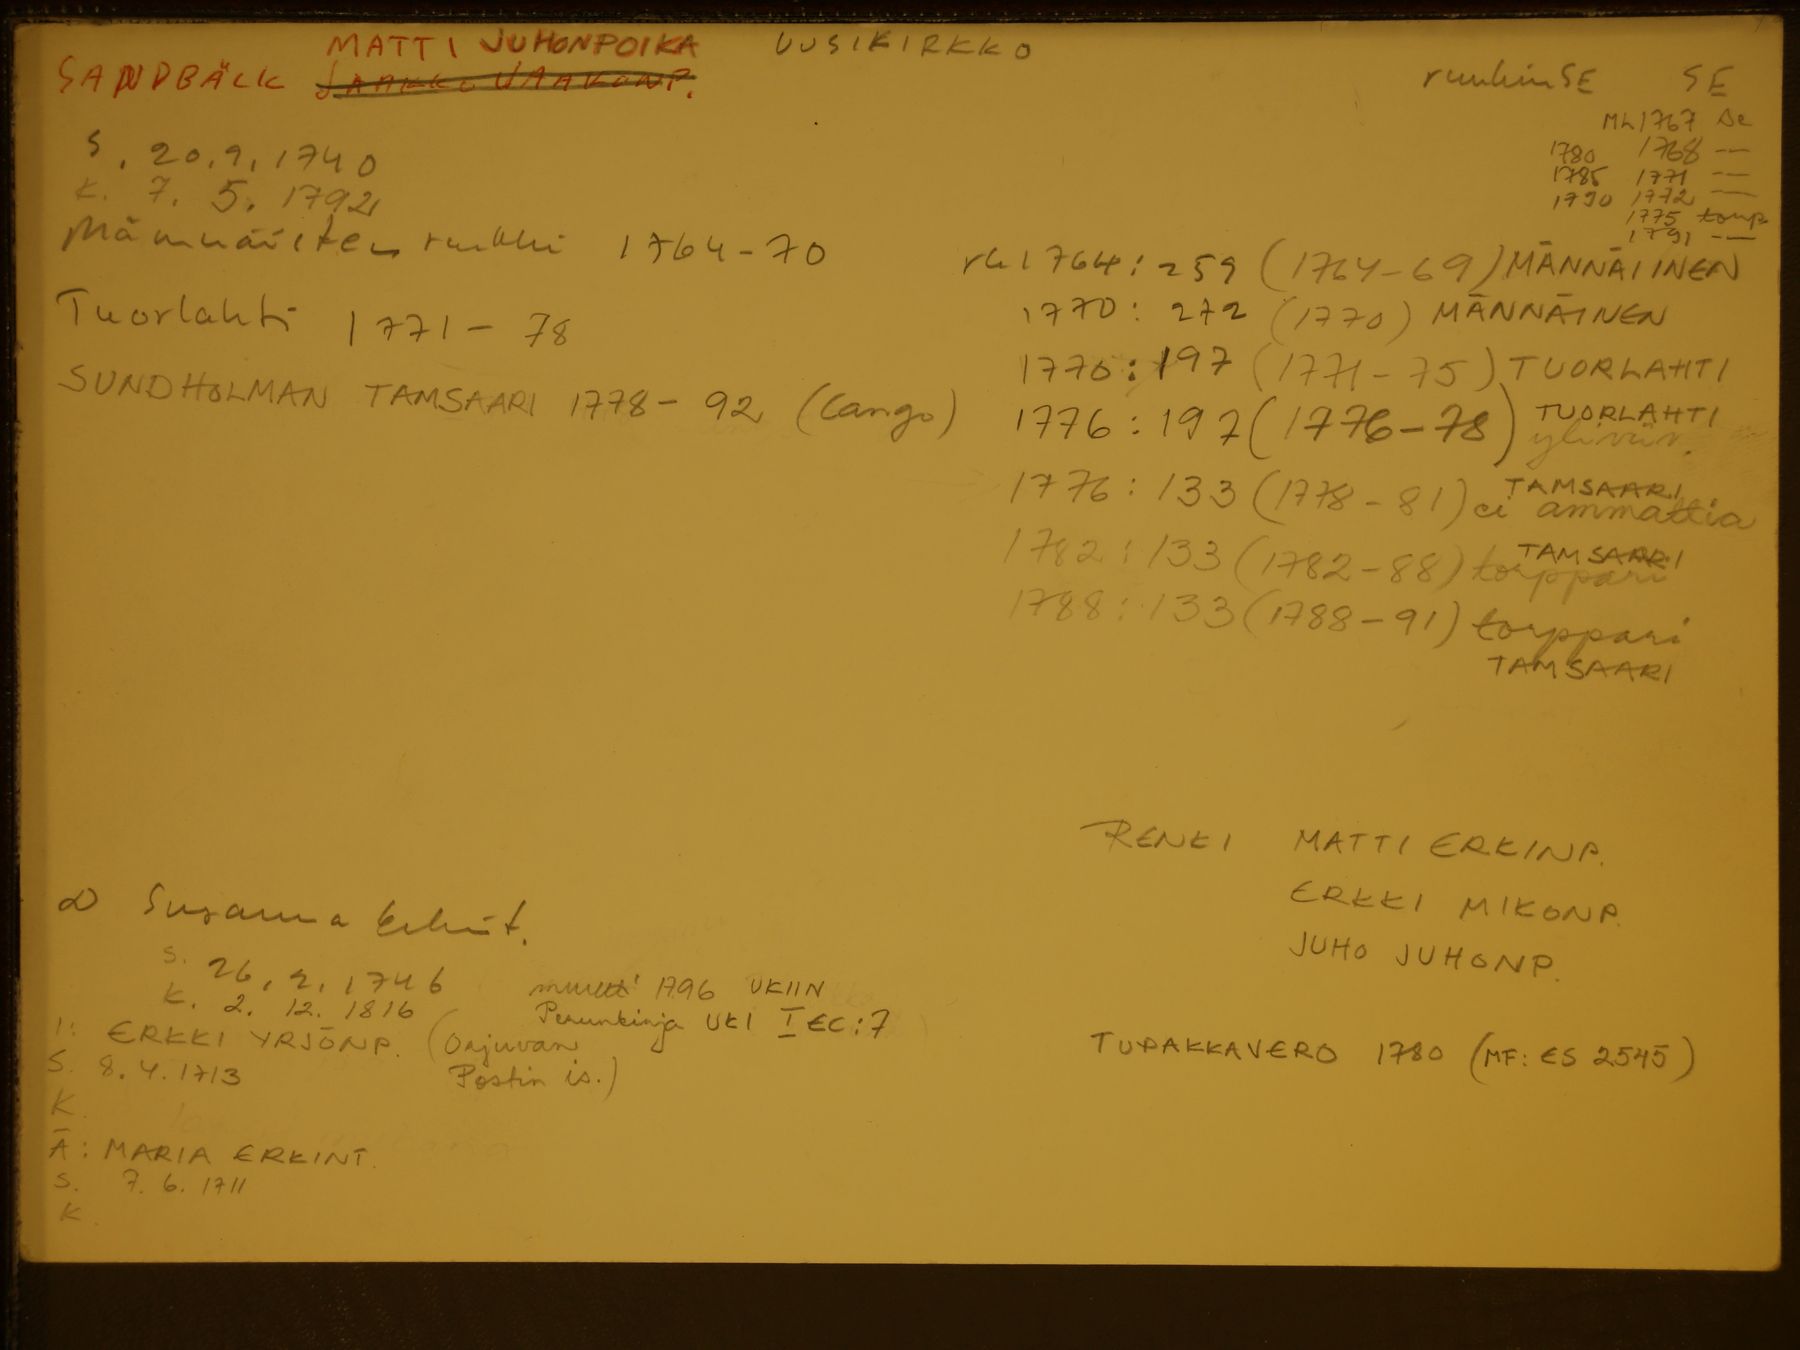 MATTI JUHONPOIKA UUSIKIRKKO
SANDBÄCK JAAKKO JAAKONP.
ruukin SE SE
ML 1767 Se
1780 1768 —
1785 1771 —
1790 1772 —
1775 torp
1791 —
S. 20.9.1740
K. 7. 5. 1792
Männäisten ruukki 1764-70
Tuorlahti 1771-78
SUNDHOLMAN TAMSAARI 1778-92 (Lango)
rk 1764: 259 (1764-69) MÄNNÄIINEN
1770: 272 (1770) MÄNNÄINEN
1770: 197 (1771-75) TUORLAHTI
1776: 197 (1776-78) TUORLAHTI
yliviiv.
1776: 133 (1778-81) TAMSAARI
ei ammattia
1782: 133 (1782-88) TAMSAARI
torppari
1788: 133 (1788-91) torppari
TAMSAARI
RENKI MATTI ERKINP.
ERKKI MIKONP.
JUHO JUHONP.
TUPAKKAVERO 1780 (MF: ES 2545)
∞ Susanna Erkint.
S. 26.2.1746
K. 2. 12. 1816
muutti 1796 UKIIN
Perunkirja UKI I EC:7
I: ERKKI YRJÖNP. (Orjuvan
Postin is.)
S. 8.4.1713
K.
Ä: MARIA ERKINT.
S. 7. 6. 1711
K.